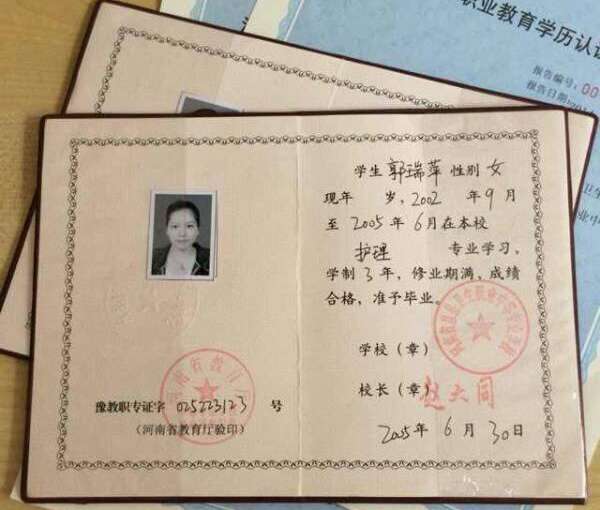 职业教育学历认证
报告编号:00
报告日期:
学生 郭瑞萍 性别 女
现年 岁,2002 年 9 月
至 2005 年 6 月在本校
护理 专业学习,
学制 3 年,修业期满,成绩
合格,准予毕业。
学校(章)
校长(章)
赵大同
河南省教育厅
豫教职专证字 025223123 号
(河南省教育厅验印)
2005 年 6 月 30 日